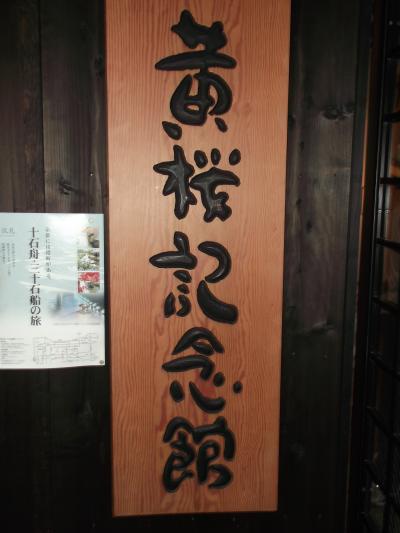 黄桜記念館
十石舟・三十石船の旅